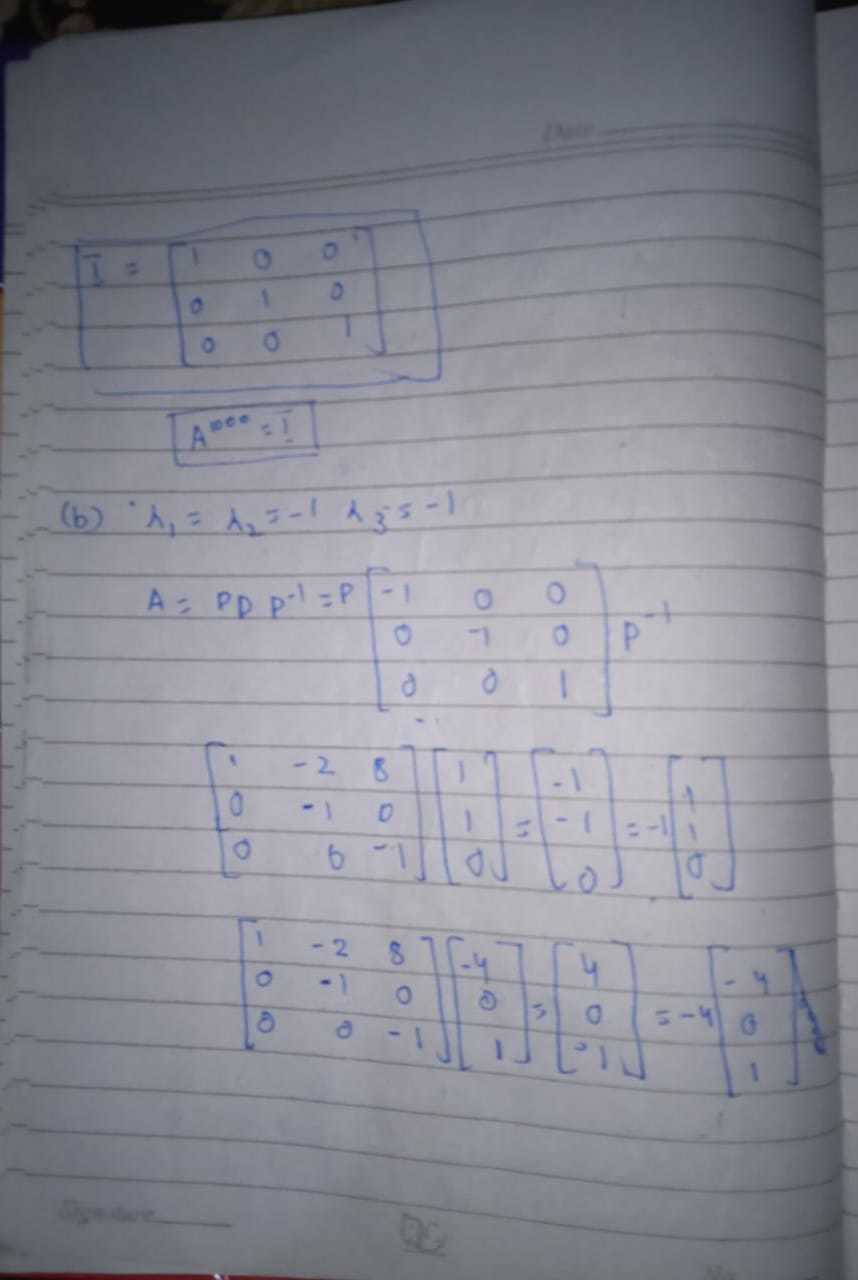 Date
I = [1 0 0
0 1 0
0 0 1]
A¹⁰⁰⁰ = I
(b) λ₁ = λ₂ = -1 λ₃ = -1
A = PD P⁻¹ = P [-1 0 0
0 -1 0
0 0 1] P⁻¹
[1 -2 8
0 -1 0
0 0 -1] [1
1
0] = [-1
-1
0] = -1 [1
1
0]
[1 -2 8
0 -1 0
0 0 -1] [-4
0
1] = [4
0
-1] = -4 [-4
0
1]
Signature